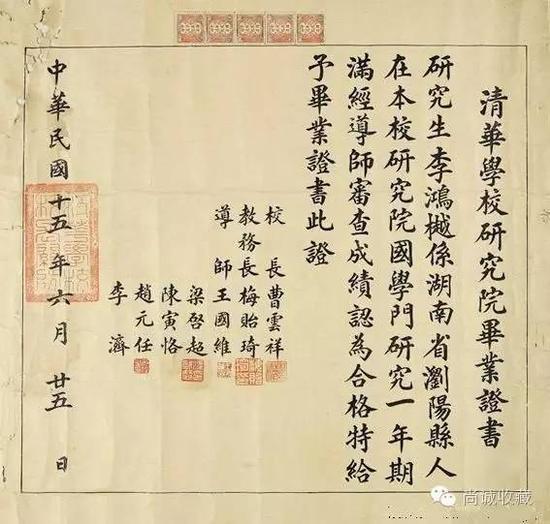 清華學校研究院畢業證書
研究生李鴻樾係湖南省瀏陽縣人
在本校研究院國學門研究一年期
滿經導師審查成績認為合格特給
予畢業證書此證
校長曹雲祥
教務長梅貽琦
導師王國維
梁啓超
陳寅恪
趙元任
李濟
中華民國十五年六月廿五日
尚诚收藏